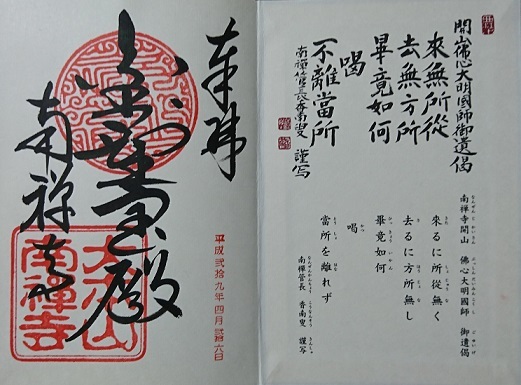 奉拝
金剛王寶殿
南禅寺
平成弐拾九年四月
大本山
南禪寺
開山佛心大明國師御遺偈
來無所從
去無方所
畢竟如何
喝
不離當所
南禅管長香南叟 謹写
南禅寺開山 佛心大明國師 御遺偈
來るに所從無く
去るに方所無し
畢竟如何
喝
當所を離れず
南禅管長 香南叟 謹写